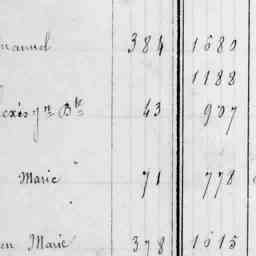 manuel 384 1680
1188
Alexis Jn Bte 43 907
Marie 71 778
en Marie 378 1615